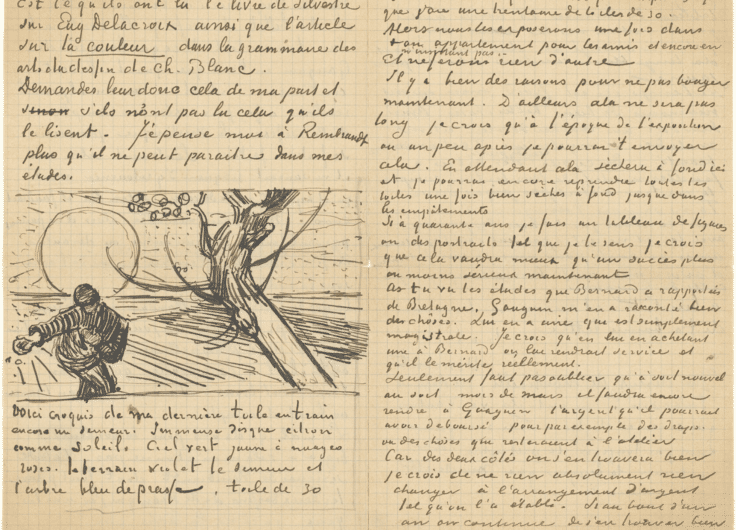 est ce qu'ils ont lu le livre de silvestre
sur Eug Delacroix ainsi que l'article
sur la couleur dans la grammaire des
arts du dessin de Ch. Blanc.
Demandes leur donc cela de ma part et
sinon s'ils n'ont pas lu cela qu'ils
le lisent. J'épense moi à Rembrandt
plus qu'il ne peut paraitre dans mes
études.
Voici croquis de ma dernière toile en train
encore un semeur. Immense disque citron
comme soleil. Ciel vert jaune à nuages
roses. le terrain violet le semeur et
l'arbre bleu de prusse. toile de 30
que j'aie une trentaine de toiles de 30.
Alors nous les exposerons une fois dans
ton appartement pour les amis et encore en
n'insistant pas.
et ne ferons rien d'autre
Il y a bien des raisons pour ne pas bouger
maintenant. D'ailleurs cela ne sera pas
long je crois qu'à l'époque de l'exposition
ou un peu après je pourrai t'envoyer
cela. En attendant cela sèchera à fond ici
et je pourrai encore reprendre toutes les
toiles une fois bien sèches à fond jusque dans
les empâtements
Si à quarante ans je fais un tableau de figures
ou des portraits tel que je le sens je crois
que cela vaudra mieux qu'un succès plus
ou moins sérieux maintenant
as tu vu les études que Bernard a rapportées
de Bretagne, Gauguin m'en a raconté bien
des choses. Lui en a une qui est simplement
magistrale. Je crois qu'en lui en achetant
une à Bernard on lui rendrait service et
qu'il le mérite réellement.
Seulement faut pas oublier qu'à soit nouvel
an soit mois de mars il faudra encore
rendre à Gauguin l'argent qu'il pourrait
avoir deboursé pour par exemple des draps.
ou des choses qui resteraient à l'atelier
Car des deux côtés on s'en trouvera bien
je crois de ne rien absolument rien
changer à l'arrangement d'argent
tel qu'on l'a établi. Si au bout d'un
an on continue de s'en trouver bien